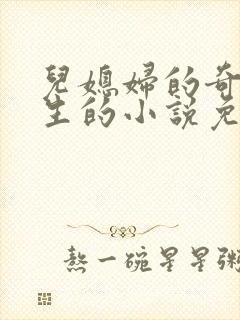 兒媳婦的奇
生的小説免
熬一碗星星粥